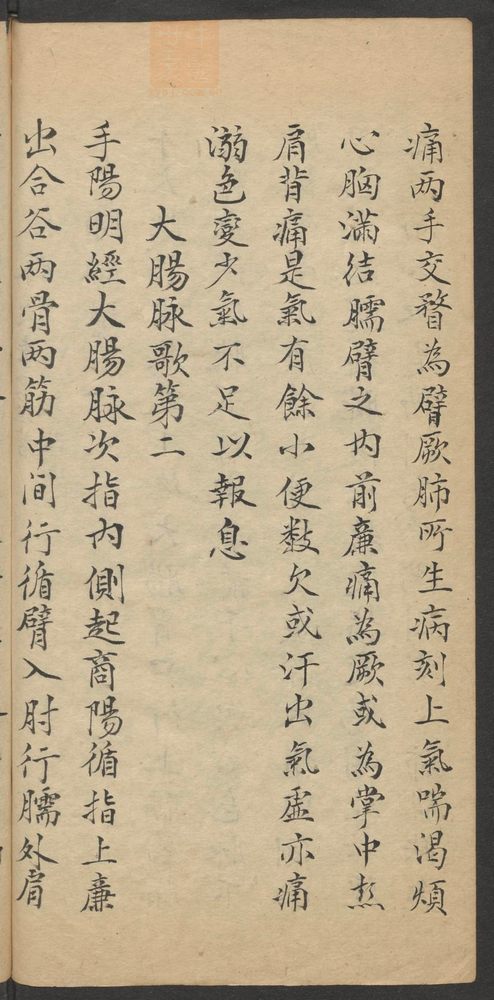 痛两手交瞀為臂厥肺所生病刻上氣喘渴煩
心胸滿结臑臂之内前廉痛為厥或為掌中热
肩背痛是氣有餘小便数欠或汗出氣虚亦痛
溺色變少氣不足以報息
大腸脉歌第二
手陽明經大腸脉次指内側起商陽循指上廉
出合谷两骨两筋中间行循臂入肘行臑外肩